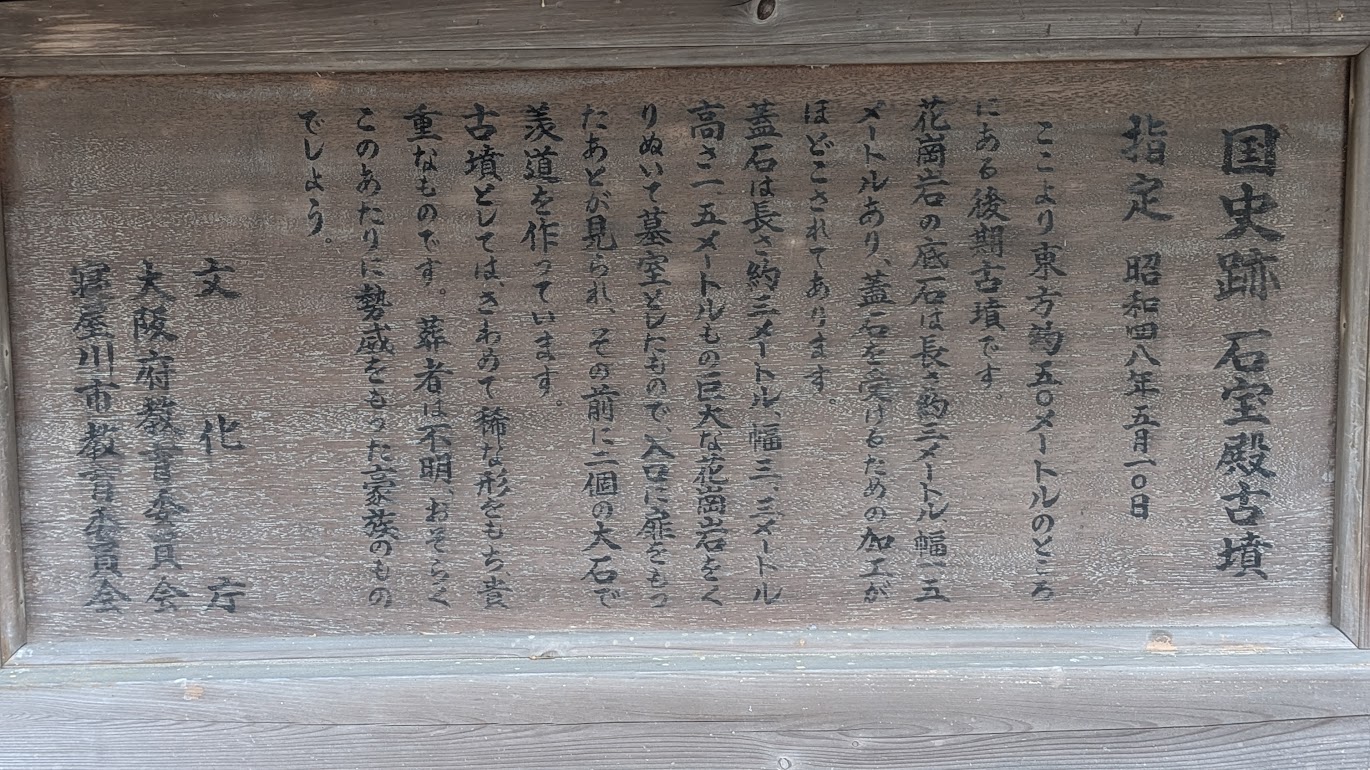 国史跡 石宝殿古墳
指定 昭和四八年五月一〇日
ここより東方約五〇メートルのところ
にある後期古墳です。
花崗岩の底石は長さ約三メートル幅一、五
メートルあり、蓋石を受けるための加工が
ほどこされてあります。
蓋石は長さ約三メートル、幅三、三メートル
高さ一、五メートルもの巨大な花崗岩をく
りぬいて墓室としたもので、入口に扉をもっ
たあとが見られ、その前に二個の大石で
羨道を作っています。
古墳としては、きわめて稀な形をもち、貴
重なものです。葬者は不明、おそらく
このあたりに勢威をもった豪族のもの
でしょう。
文化庁
大阪府教育委員会
寝屋川市教育委員会